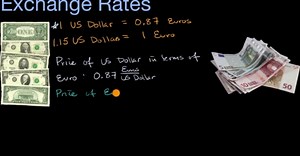 Exchange Rates
$1 US Dollar = 0.87 Euros
1.15 US Dollars = 1 Euro
Price of US Dollar in terms of
Euro : 0.87 Euros / US Dollar
Price of E
50